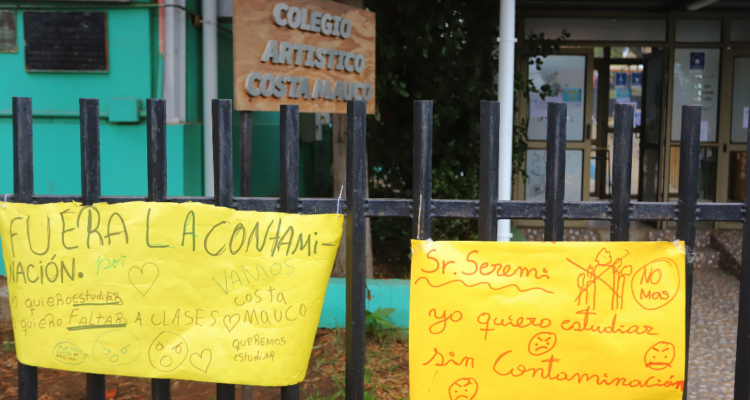 COLEGIO
ARTISTICO
COSTA MAUCO
FUERA LA CONTAMI-
NACIÓN. por
quiero estudiar
quiero FALTAR A CLASES
VAMOS
costa
MAUCO
queremos
estudiar
Sr. Seremi
NO
MAS
yo quiero estudiar
sin Contaminación